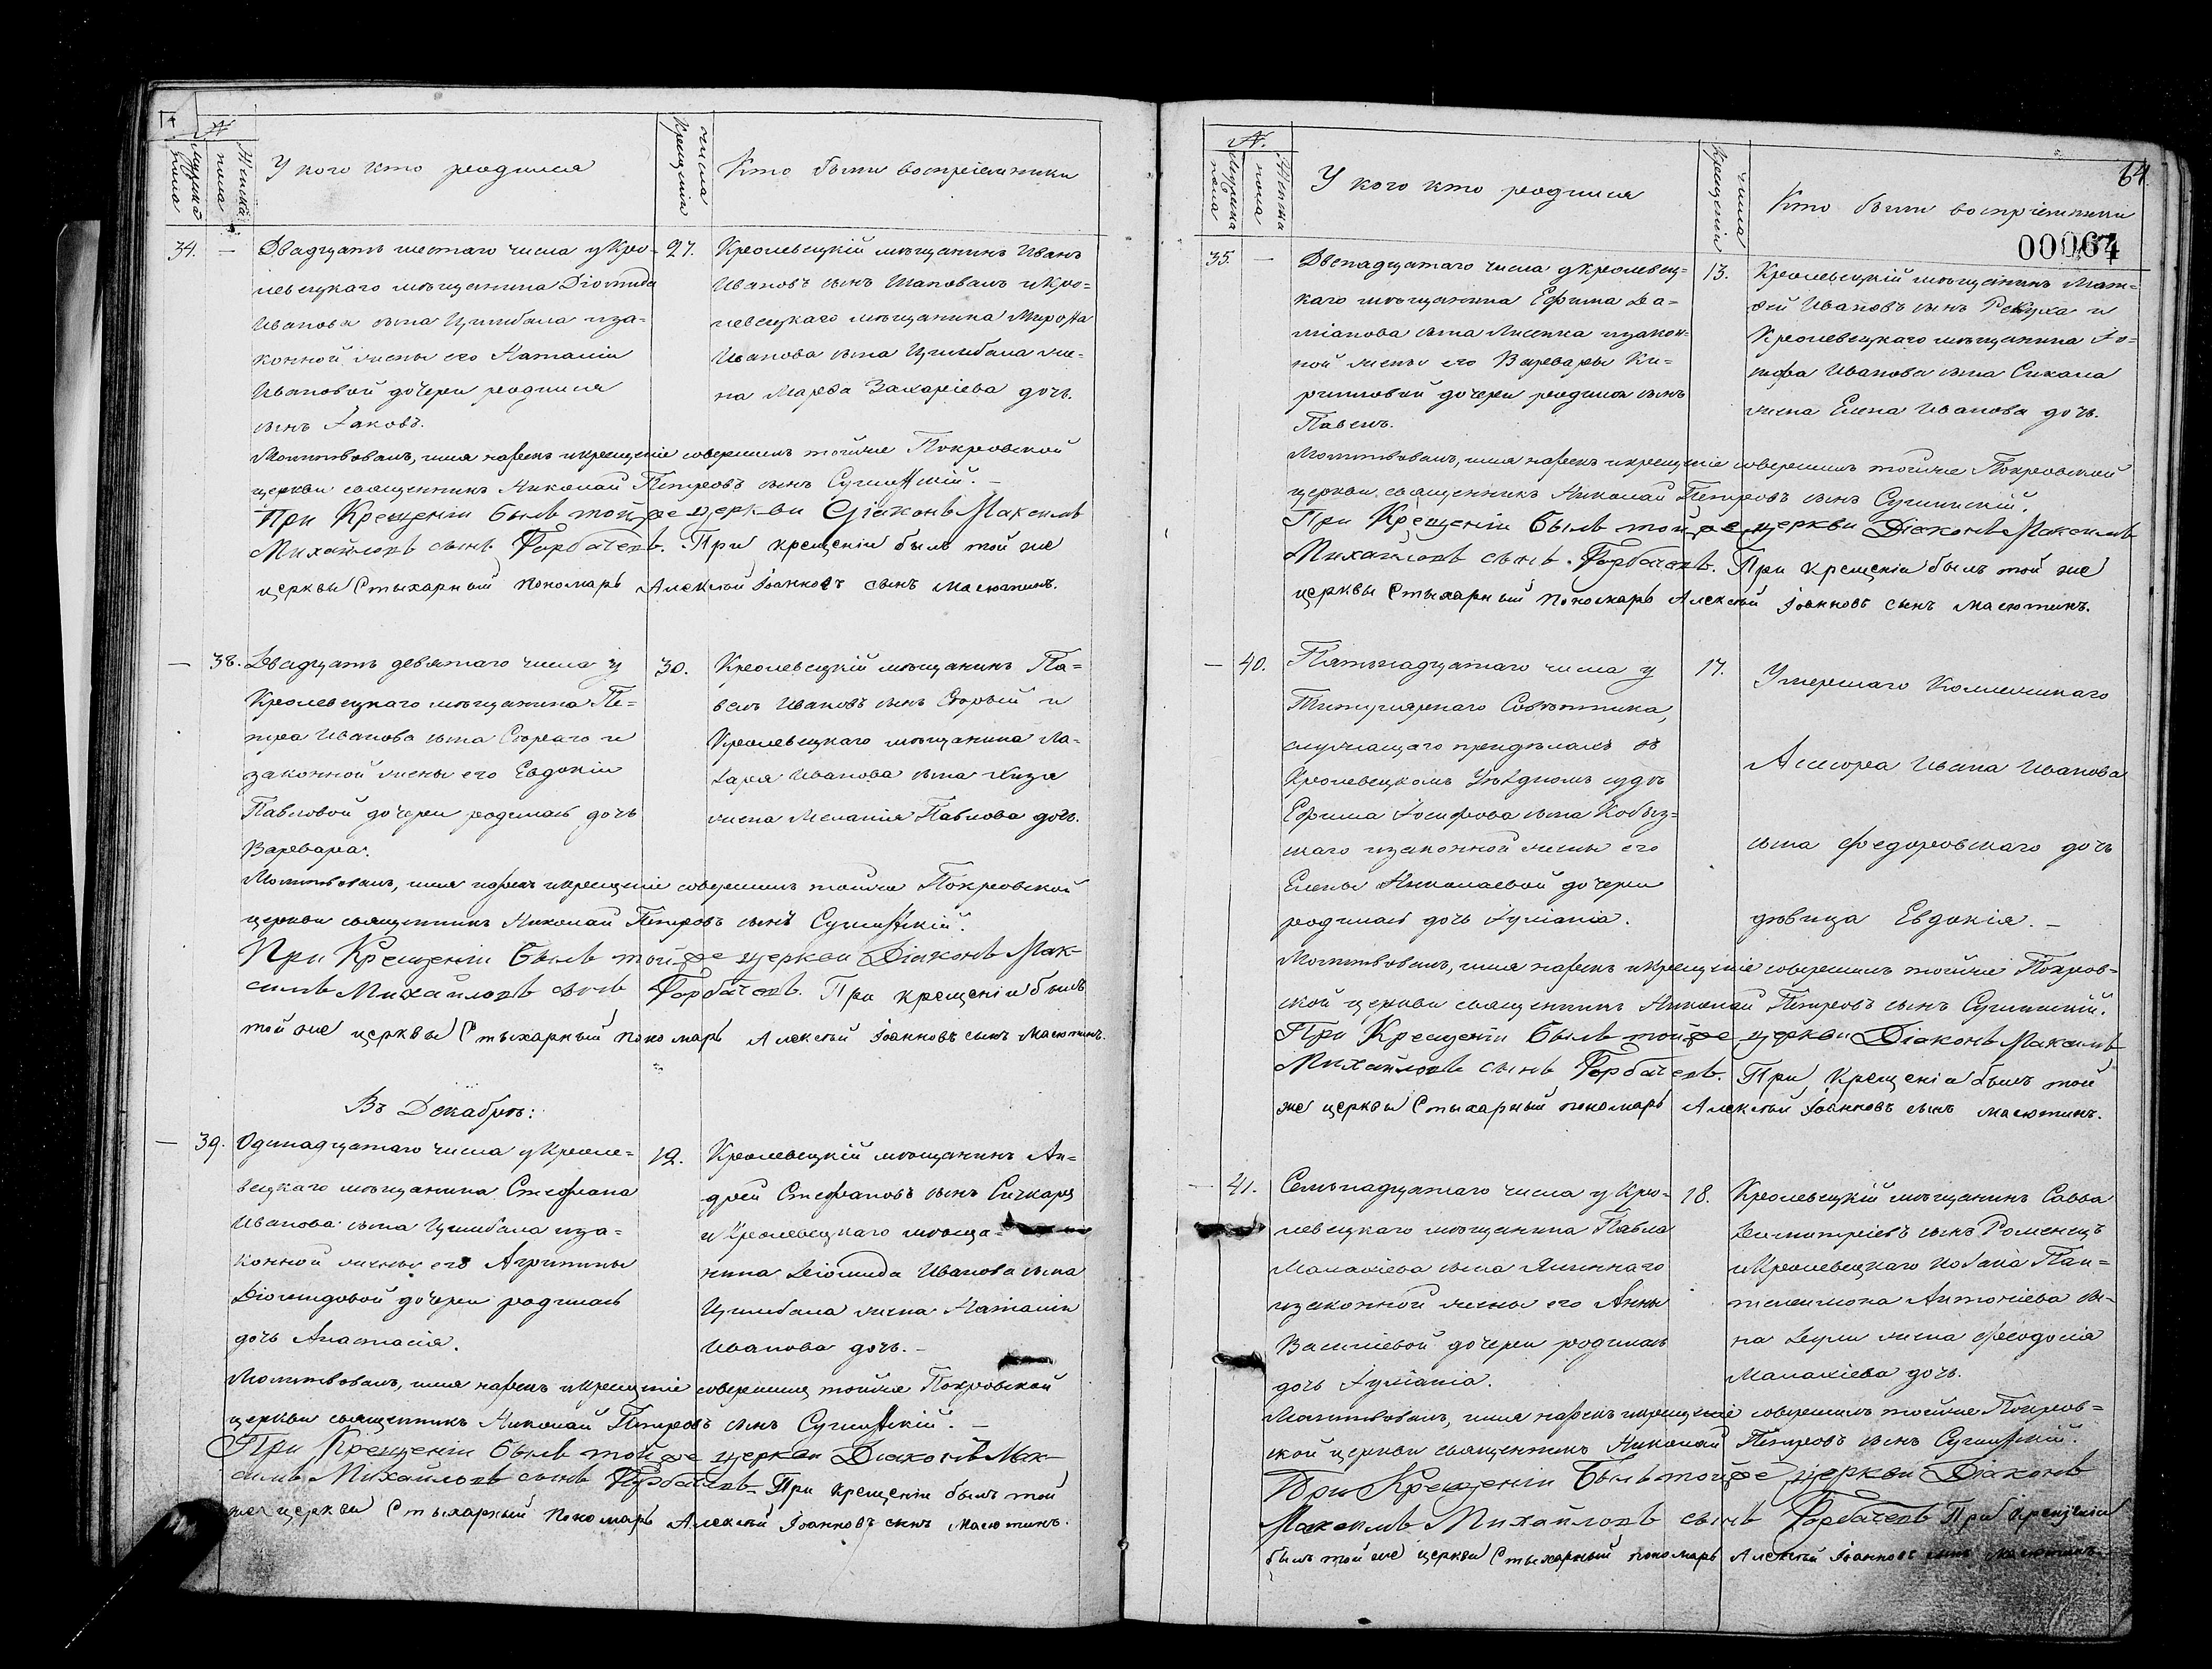 14
№
Мужска пола
Женска пола
У кого кто родился
числа Крещенія
Кто были воспріемники
34. — Двадцать шестаго числа у Кро-
левецкаго мѣщанина Діомида
Иванова сына Цимбала и за-
конной жены его Наталіи
Ивановой дочери родился
сынъ Іаковъ.
27. Кролевецкій мѣщанинъ Иванъ
Ивановъ сынъ Шаповалъ и Кро-
левецкаго мѣщанина Мирона
Иванова сына Цимбала же-
на Марѳа Захаріева дочь.
Молитвовалъ, имя нарекъ и крещеніе совершилъ тойже Покровской
церкви священникъ Николай Петровъ сынъ Сушинскій. —
При Крещеніи былъ тойже церкви Діаконъ Максимъ
Михайловъ сынъ Горбачевъ. При крещеніи былъ той же
церквы Стыхарный пономарь Алексѣй Іоанновъ сынъ Масютинъ.
— 38. Двадцать девятаго числа у
Кролевецкаго мѣщанина Пе-
тра Иванова сына Сѣраго и
законной жены его Евдокіи
Павловой дочери родилась дочь
Варвара.
30. Кролевецкій мѣщанинъ Па-
велъ Ивановъ сынъ Сѣрый и
Кролевецкаго мѣщанина Ла-
заря Иванова сына Хизя
жена Меланія Павлова дочь.
Молитвовалъ, имя нарекъ и крещеніе совершилъ тойже Покровской
церкви священникъ Николай Петровъ сынъ Сушинскій.
При Крещеніи былъ тойже церкви Діаконъ Мак-
симъ Михайловъ сынъ Горбачевъ. При крещеніи былъ
той же церквы Стыхарный пономарь Алексѣй Іоанновъ сынъ Масютинъ.
Въ Декабрѣ:
— 39. Одинадцатаго числа у Кроле-
вецкаго мѣщанина Стефана
Иванова сына Цимбала и за-
конной жены его Агрипины
Діомидовой дочери родилась
дочь Анастасія.
12. Кролевецкій мѣщанинъ Ан-
дрей Стефановъ сынъ Сичкарь
и Кролевецкаго мѣща-
нина Діомида Иванова сына
Цимбала жена Наталія
Иванова дочь. —
Молитвовалъ, имя нарекъ и крещеніе совершилъ тойже Покровской
церкви священникъ Николай Петровъ сынъ Сушинскій. —
При Крещеніи былъ тойже церкви Діаконъ Мак-
симъ Михайловъ сынъ Горбачевъ. При крещеніи былъ той
же церкви Стыхарный пономарь Алексѣй Іоанновъ сынъ Масютинъ.
64.
00064
№.
Мужска пола
Женска пола
У кого кто родился
числа Крещенія
Кто были воспріемники
35. — Двенадцатаго числа у Кролевец-
каго мѣщанина Ефима Да-
міанова сына Лисенка и закон-
ной жены его Варвары Ки-
рилловой дочери родился сынъ
Павелъ.
13. Кролевецкій мѣщанинъ Мат-
ѳей Ивановъ сынъ Рекуха и
Кролевецкаго мѣщанина Іо-
сифа Иванова сына Сикала
жена Елена Иванова дочь.
Молитвовалъ, имя нарекъ и крещеніе совершилъ тойже Покровской
церкви священникъ Николай Петровъ сынъ Сушинскій.
При Крещеніи былъ тойже церкви Діаконъ Максимъ
Михайловъ сынъ Горбачевъ. При крещеніи былъ той же
церквы Стыхарный пономарь Алексѣй Іоанновъ сынъ Масютинъ.
— 40. Пятьнадцатаго числа у
Титулярнаго Совѣтника,
служащаго при дѣлахъ въ
Кролевецкомъ Уѣздномъ судѣ
Ефима Іосифова сына Кобыз-
скаго и законной жены его
Елены Николаевой дочери
родилась дочь Іуліанія.
17. Умершаго Коллежскаго
Асесора Ивана Иванова
сына Федоровскаго дочь
дѣвица Евдокія. —
Молитвовалъ, имя нарекъ и крещеніе совершилъ тойже Покров-
ской церкви священникъ Николай Петровъ сынъ Сушинскій.
При Крещеніи былъ тойже церкви Діаконъ Максимъ
Михайловъ сынъ Горбачевъ. При Крещеніи былъ той
же церквы Стыхарный пономарь Алексѣй Іоанновъ сынъ Масютинъ.
— 41. Семьнадцатаго числа у Кро-
левецкаго мѣщанина Павла
Малахіева сына Яшнаго
и законной жены его Анны
Васильевой дочери родилась
дочь Іуліанія.
18. Кролевецкій мѣщанинъ Савва
Димитріевъ сынъ Роменецъ
и Кролевецкаго Козака Пан-
телеимона Антоніева сы-
на Дули жена Феодосія
Малахіева дочь.
Молитвовалъ, имя нарекъ и крещеніе совершилъ тойже Покров-
ской церкви священникъ Николай Петровъ сынъ Сушинскій.
При Крещеніи былъ тойже церкви Діаконъ
Максимъ Михайловъ сынъ Горбачевъ При Крещеніи
былъ той же церкви Стыхарный пономарь Алексѣй Іоанновъ сынъ Масютинъ.